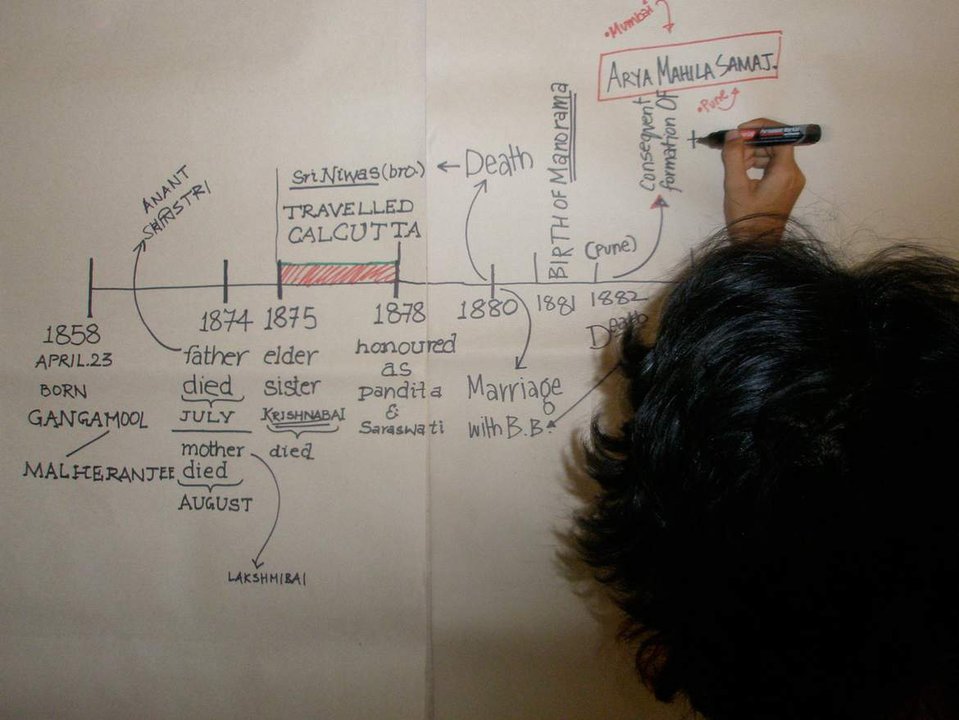 •Mumbai
ARYA MAHILA SAMAJ.
•Pune
Consequent
formation OF
+
BIRTH OF Manorama
Death
Sri Niwas (bro.)
TRAVELLED
CALCUTTA
ANANT
SHASTRI
(Pune)
1858
APRIL.23
BORN
GANGAMOOL
MALHERANJEE
1874
father
died
JULY
mother
died
AUGUST
LAKSHMIBAI
1875
elder
sister
KRISHNABAI
died
1878
honoured
as
pandita
&
Saraswati
1880
Marriage
with B.B.
1881
1882
Death